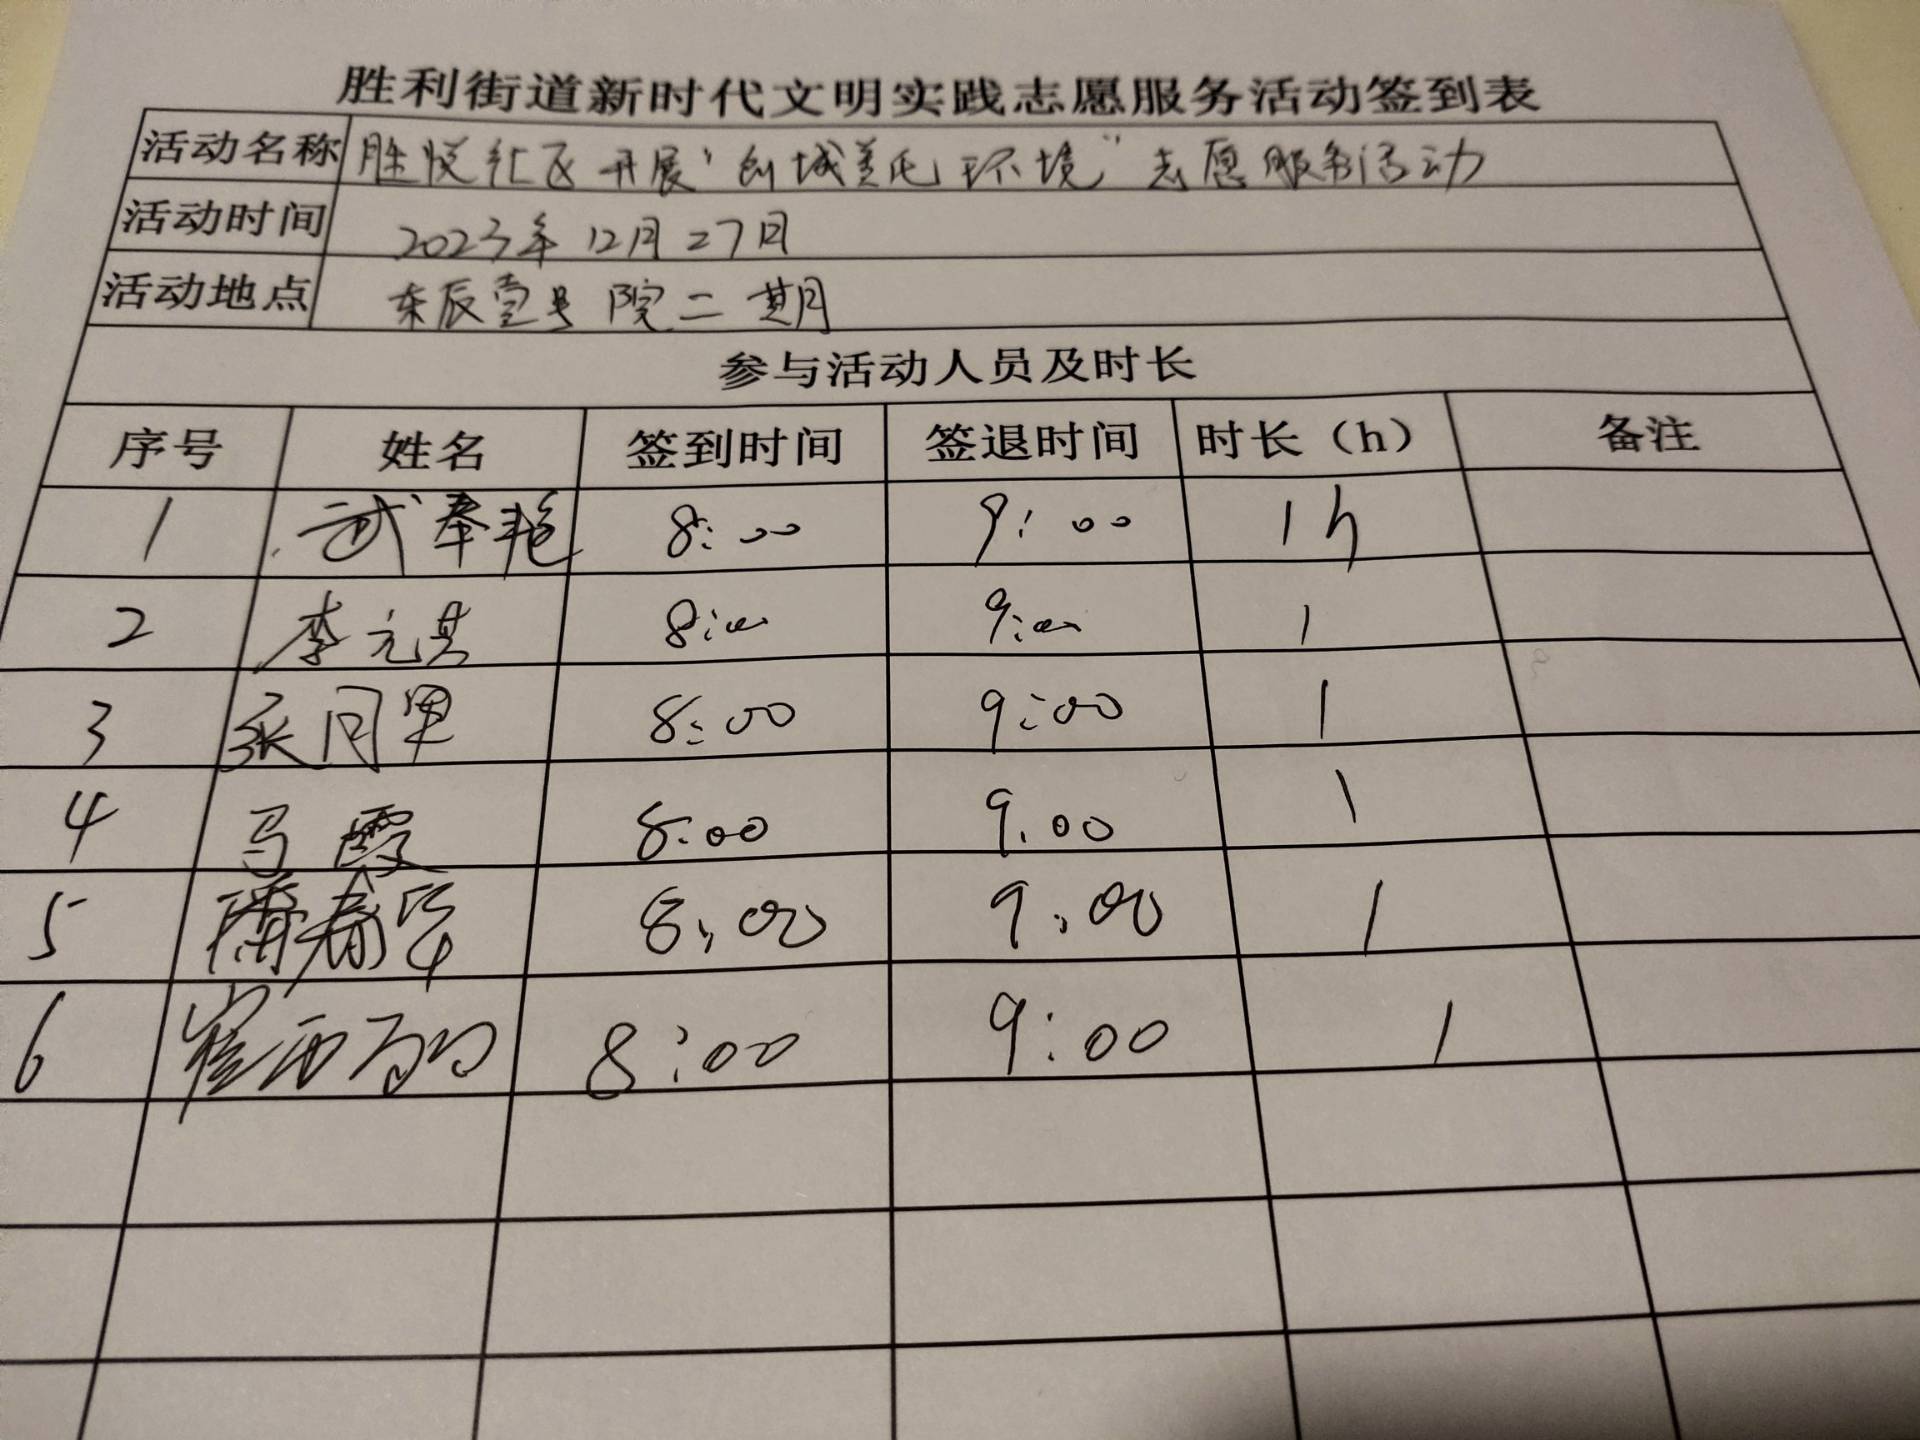 胜利街道新时代文明实践志愿服务活动签到表
活动名称 胜悦社区开展“创城美化环境”志愿服务活动
活动时间 2023年12月27日
活动地点 东辰壹号院二期
参与活动人员及时长
序号 姓名 签到时间 签退时间 时长（h） 备注
1 武奉艳 8:00 9:00 1h
2 李元其 8:00 9:00 1
3 张同军 8:00 9:00 1
4 马霞 8:00 9:00 1
5 潘春华 8:00 9:00 1
6 崔 8:00 9:00 1